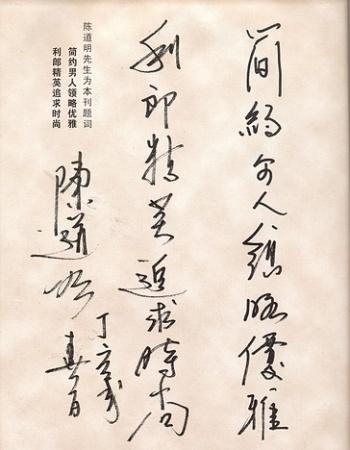 簡約男人領略優雅
利郎精英追求時尚
陈道明先生为本刊题词
简约男人领略优雅
利郎精英追求时尚
陳道明
丁亥